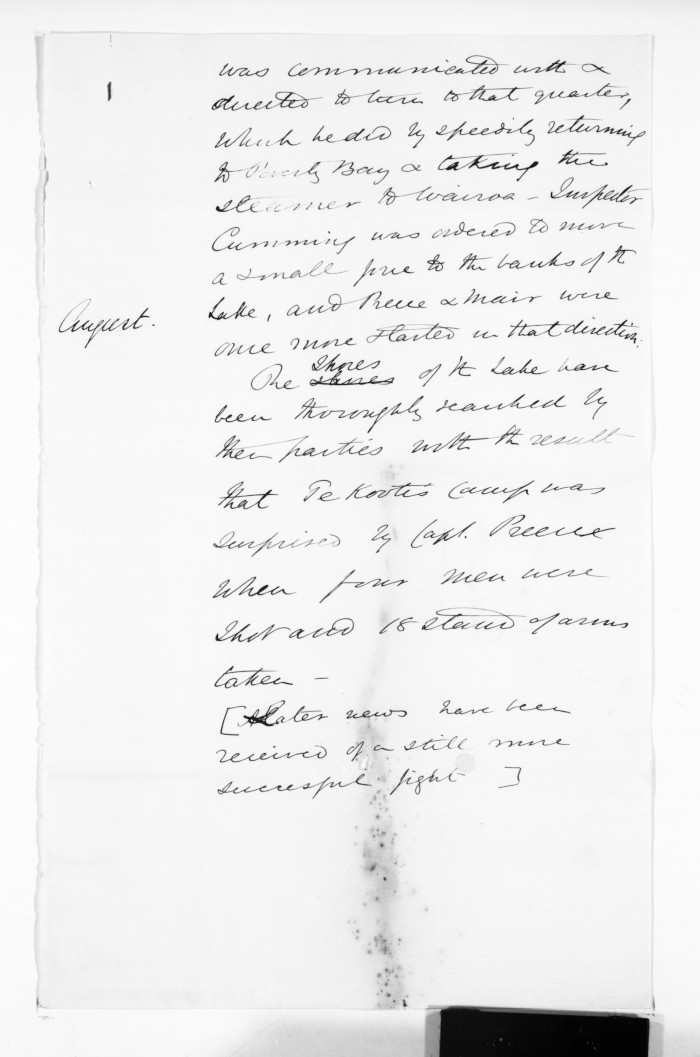 was communicated with &
directed to turn to that quarter,
which he did by speedily returning
to Poverty Bay & taking the
steamer to Wairoa – Inspector
Cumming was ordered to move
a small force to the banks of the
August.
Lake, and Preece & Mair were
once more started in that direction.
The shores shores of the Lake have
been thoroughly searched by
these parties with the result
that Te Kooti's camp was
surprised by Capt. Preece
when four men were
shot and 18 stand of arms
taken –
[Later news have been
received of a still more
successful fight ]